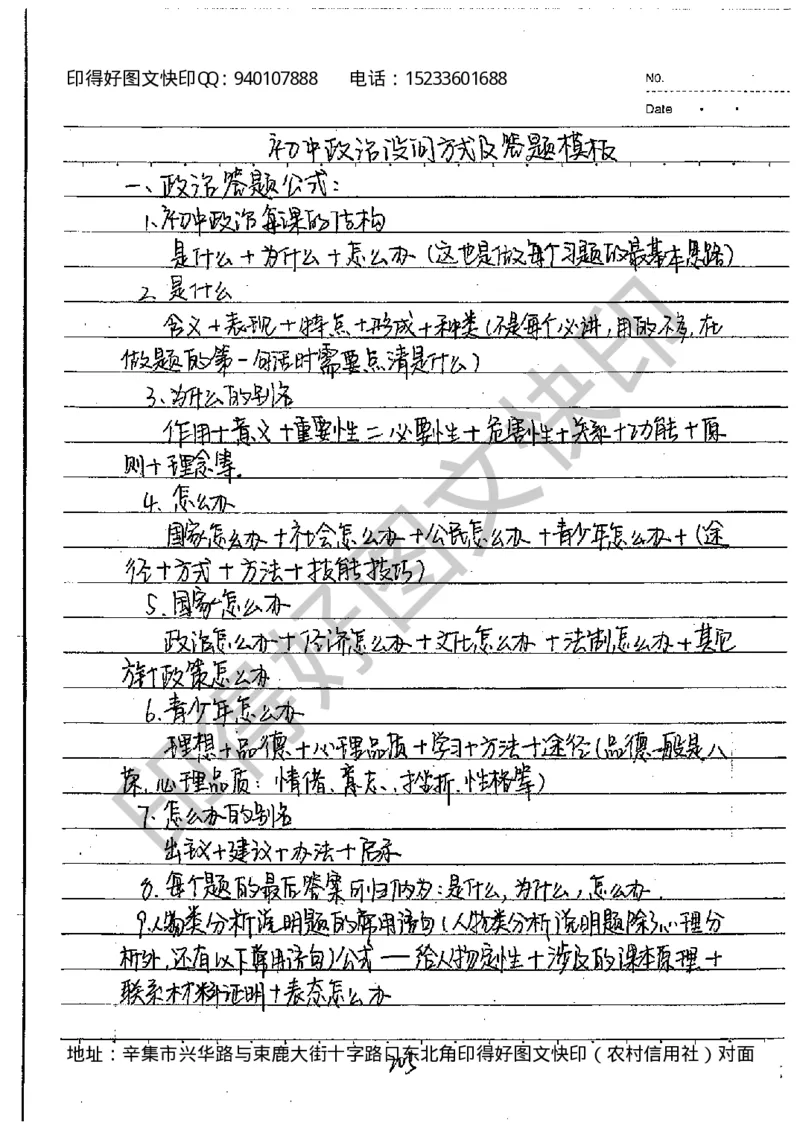 印得好图文快印QQ：940107888 电话：15233601688
No.
Date
初中政治设问方式及答题模板
一、政治答题公式：
1、初中政治每课的结构
是什么＋为什么＋怎么办（这也是做每个习题的最基本思路）
2、是什么
含义＋表现＋特点＋形成＋种类（不是每个必讲，用的不多，在
做题的第一句话时需要点清是什么）
3、为什么的别名
作用＋意义＋重要性＝必要性＋危害性＋关系＋功能＋原
则＋理念等。
4、怎么办
国家怎么办＋社会怎么办＋公民怎么办＋青少年怎么办＋（途
径＋方式＋方法＋技能技巧）
5、国家怎么办
政治怎么办＋经济怎么办＋文化怎么办＋法制怎么办＋其它
方针政策怎么办
6、青少年怎么办
理想＋品德＋心理品质＋学习＋方法＋途径（品德一般是八
荣，心理品质：情绪、意志、挫折、性格等）
7、怎么办的别名
出主议＋建议＋办法＋启示
8、每个题的最后答案可归纳为：是什么，为什么，怎么办．
9、人物类分析说明题的常用语句（人物类分析说明题除了心理分
析外，还有以下常用语句）公式——给人物定性＋涉及的课本原理＋
联系材料证明＋表态怎么办
地址：辛集市兴华路与束鹿大街十字路口东北角印得好图文快印（农村信用社）对面
205
印得好图文快印